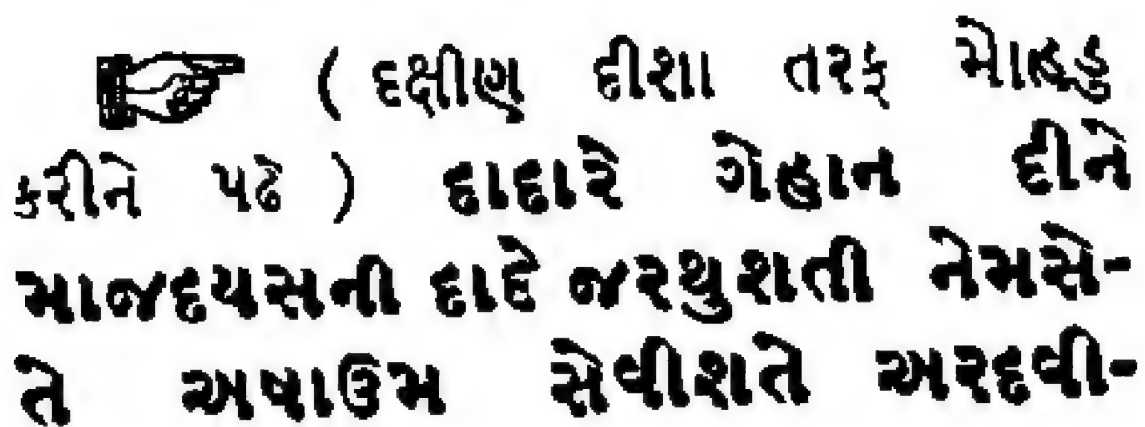 ( દક્ષીણ દીશા તરફ મોહડુ
કરીને પઢે ) દાદારે ગેહાન દીને
માજદયસની દાદે જરથુશતી નેમસે-
તે અષાઉમ સેવીશતે અરદવી-